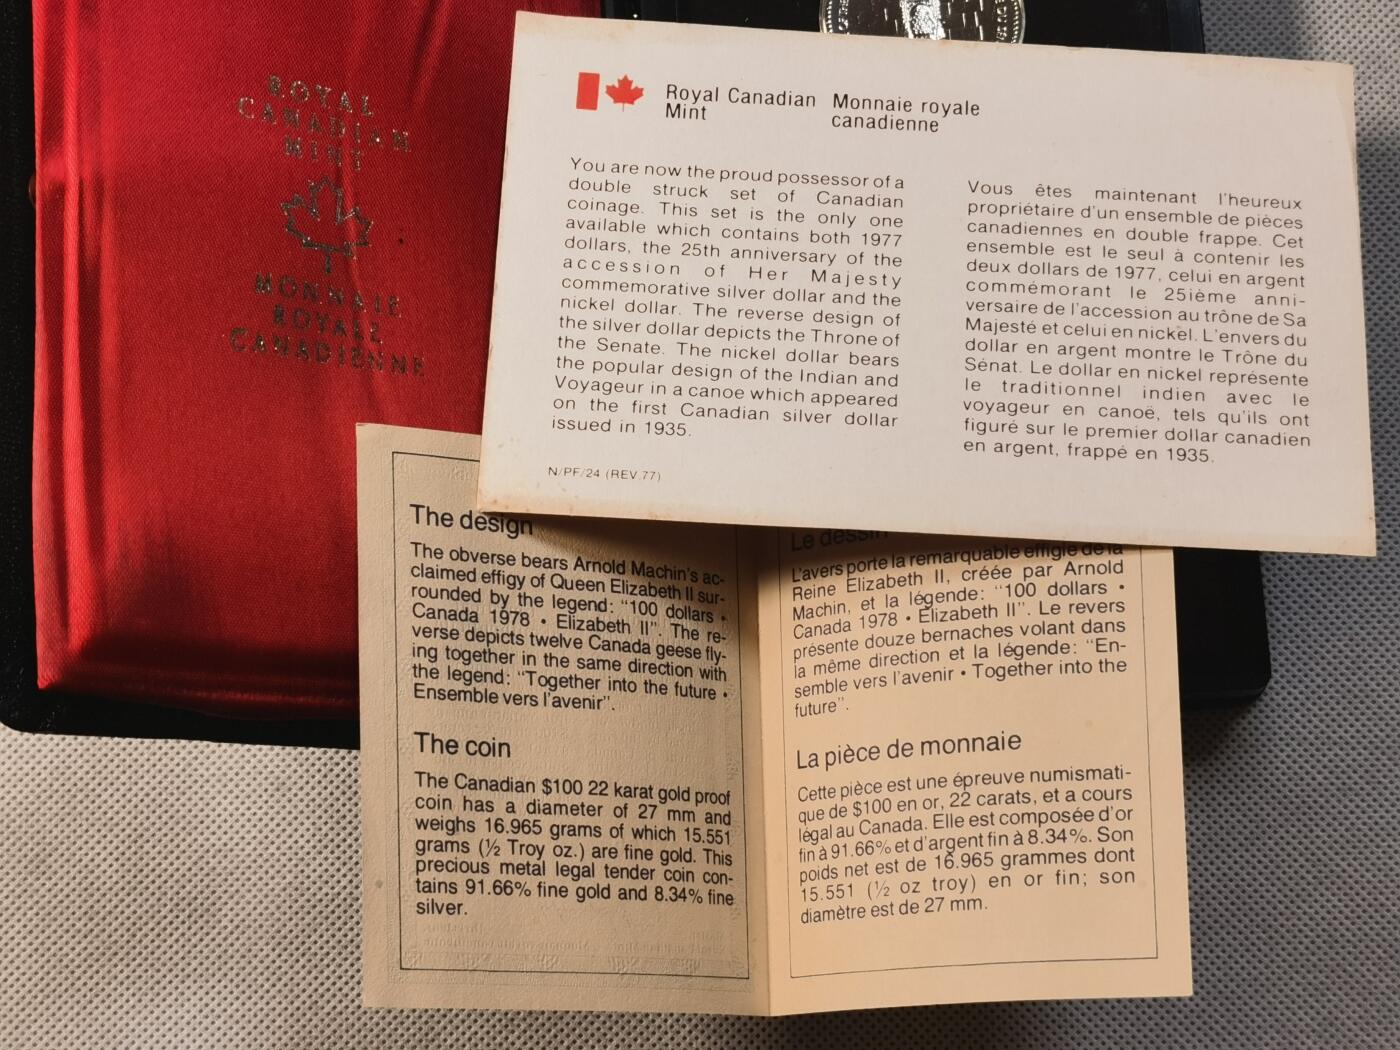 ROYAL
CANADIAN
MINT
MONNAIE
ROYALE
CANADIENNE
Royal Canadian
Mint
Monnaie royale
canadienne
You are now the proud possessor of a
double struck set of Canadian
coinage. This set is the only one
available which contains both 1977
dollars, the 25th anniversary of the
accession of Her Majesty
commemorative silver dollar and the
nickel dollar. The reverse design of
the silver dollar depicts the Throne of
the Senate. The nickel dollar bears
the popular design of the Indian and
Voyageur in a canoe which appeared
on the first Canadian silver dollar
issued in 1935.
N/PF/24 (REV.77)
Vous êtes maintenant l'heureux
propriétaire d'un ensemble de pièces
canadiennes en double frappe. Cet
ensemble est le seul à contenir les
deux dollars de 1977, celui en argent
commémorant le 25ième anni-
versaire de l'accession au trône de Sa
Majesté et celui en nickel. L'envers du
dollar en argent montre le Trône du
Sénat. Le dollar en nickel représente
le traditionnel indien avec le
voyageur en canoë, tels qu'ils ont
figuré sur le premier dollar canadien
en argent, frappé en 1935.
The design
The obverse bears Arnold Machin's ac-
claimed effigy of Queen Elizabeth II sur-
rounded by the legend: "100 dollars •
Canada 1978 • Elizabeth II". The re-
verse depicts twelve Canada geese fly-
ing together in the same direction with
the legend: "Together into the future •
Ensemble vers l'avenir".
The coin
The Canadian $100 22 karat gold proof
coin has a diameter of 27 mm and
weighs 16.965 grams of which 15.551
grams (½ Troy oz.) are fine gold. This
precious metal legal tender coin con-
tains 91.66% fine gold and 8.34% fine
silver.
Le dessin
L'avers porte la remarquable effigie de la
Reine Elizabeth II, créée par Arnold
Machin, et la légende: "100 dollars •
Canada 1978 • Elizabeth II". Le revers
présente douze bernaches volant dans
la même direction et la légende: "En-
semble vers l'avenir • Together into the
future".
La pièce de monnaie
Cette pièce est une épreuve numismati-
que de $100 en or, 22 carats, et a cours
légal au Canada. Elle est composée d'or
fin à 91.66% et d'argent fin à 8.34%. Son
poids net est de 16.965 grammes dont
15.551 (½ oz troy) en or fin; son
diamètre est de 27 mm.